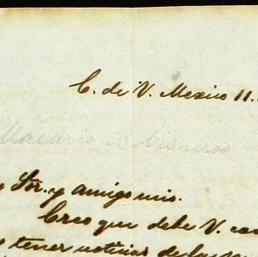 C. de V. Mexico 11.
Macario B. Cisneros
Sor. y amigo mio.
Creo que debe V.
tener noticias de